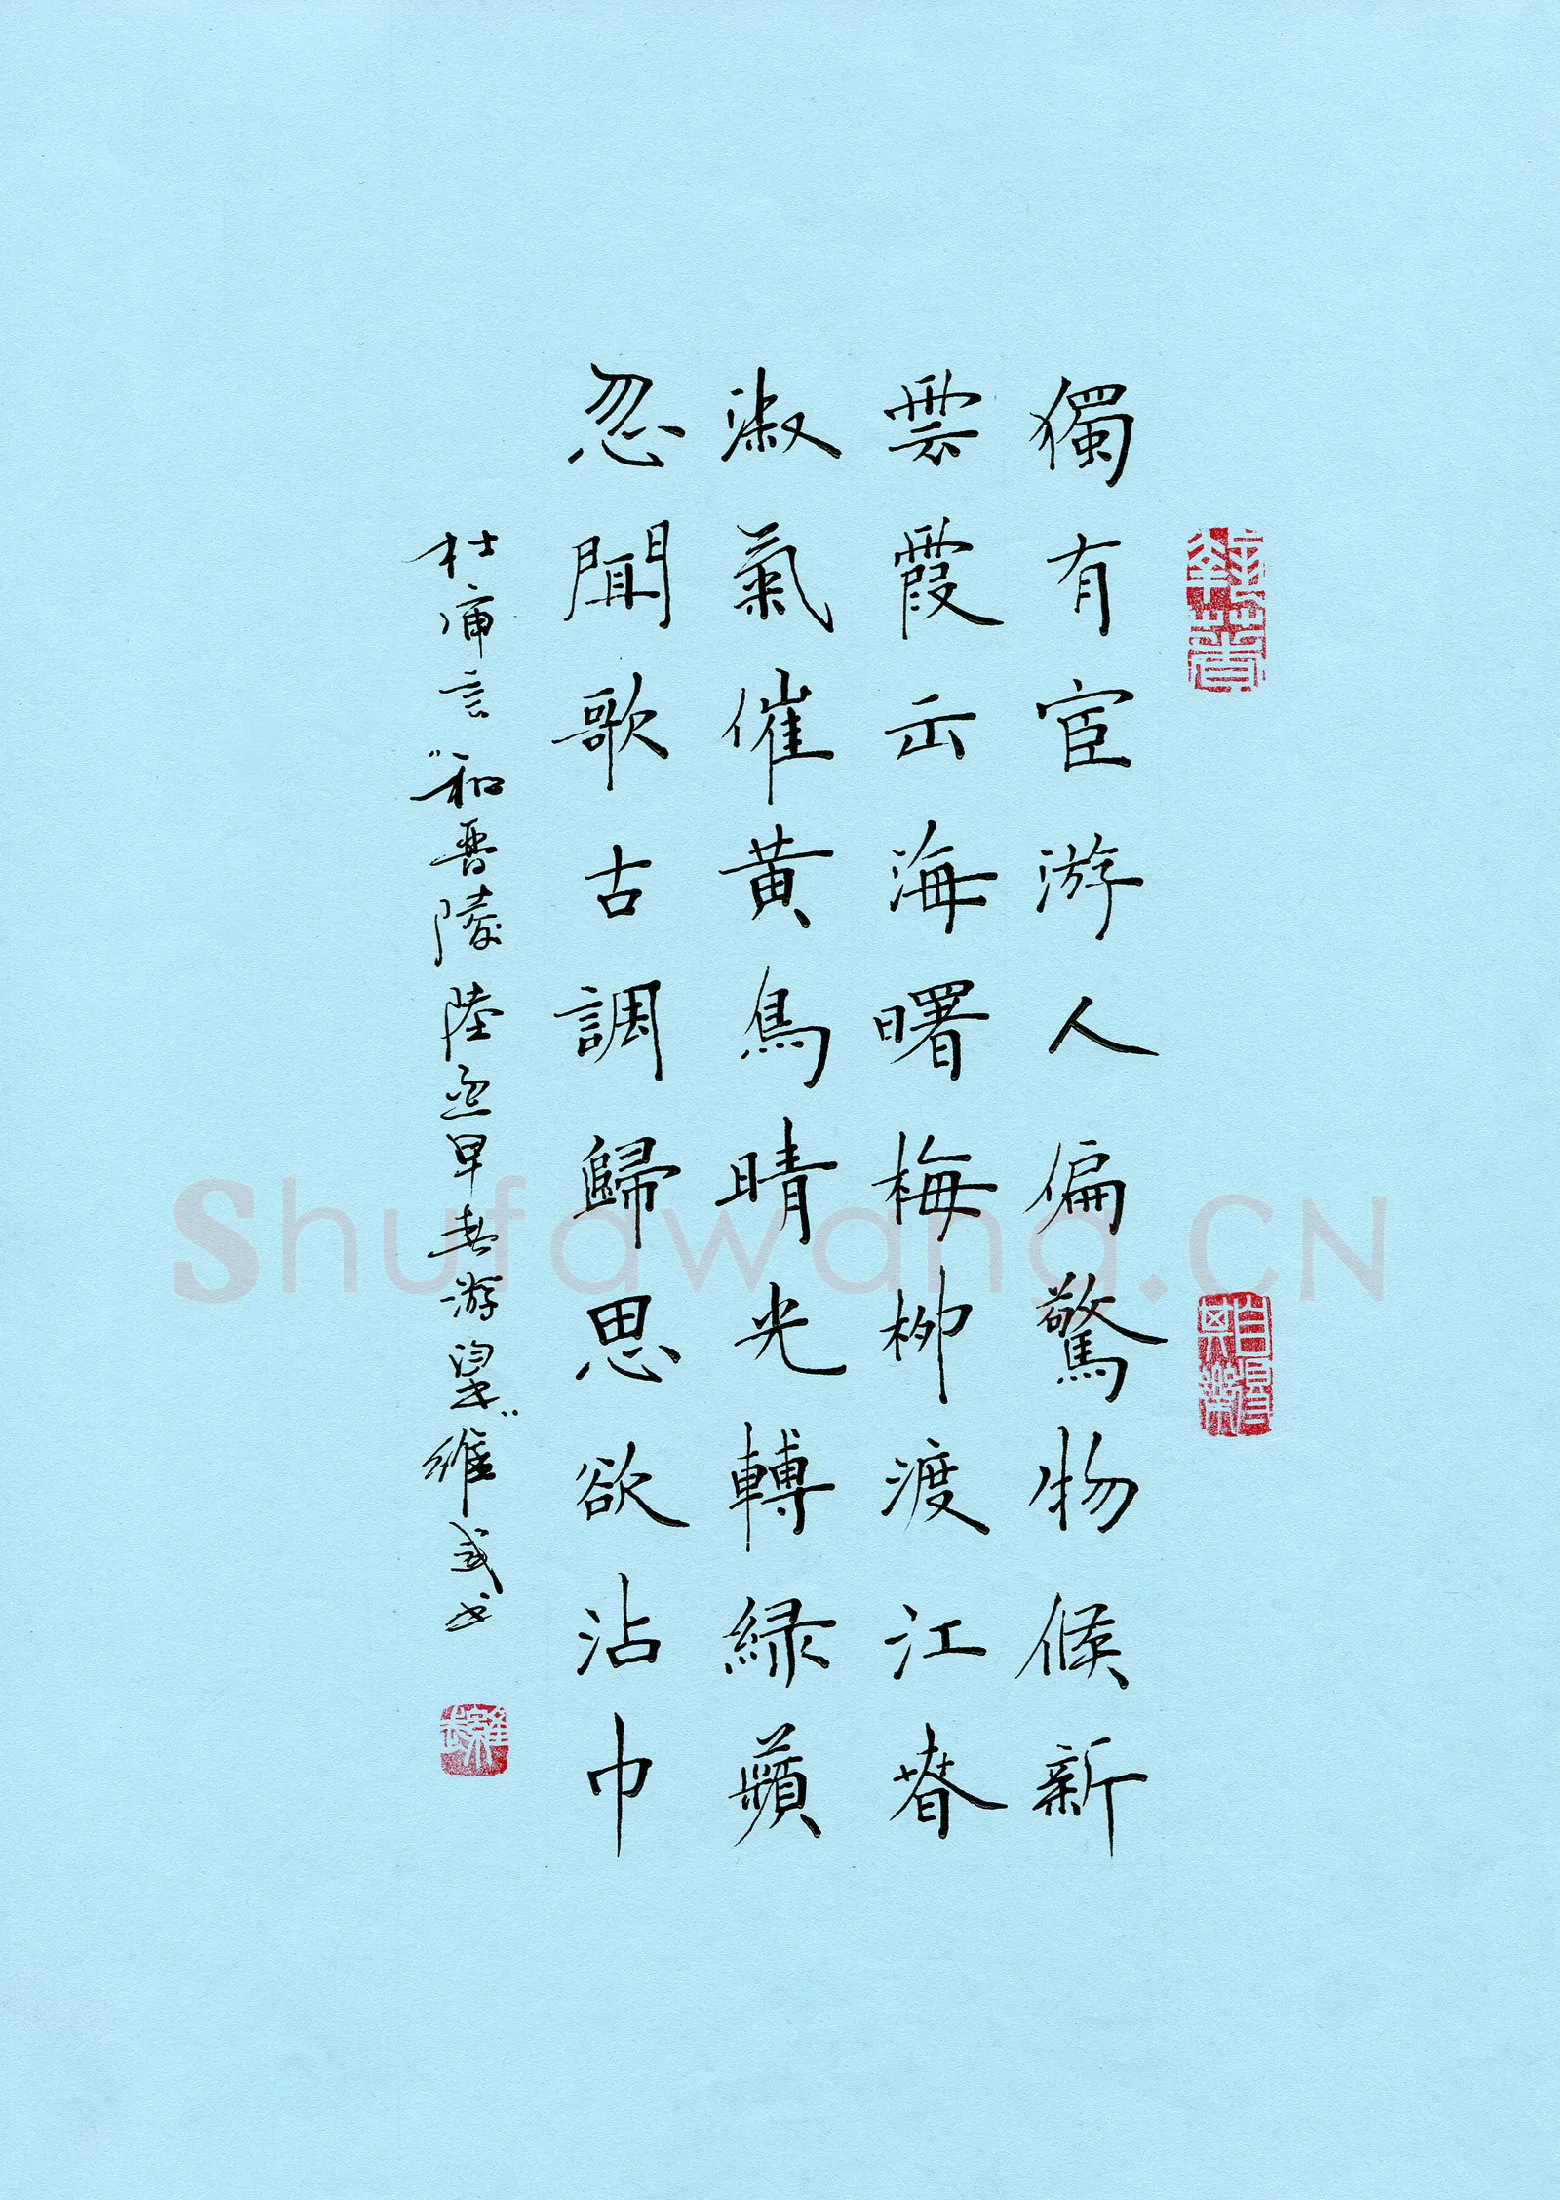 獨有宦游人偏驚物候新
雲霞出海曙梅柳渡江春
淑氣催黄鳥晴光轉緑蘋
忽聞歌古調歸思欲沾巾
杜審言"和晋陵陸丞早春游望"維武书
Shufawang.CN